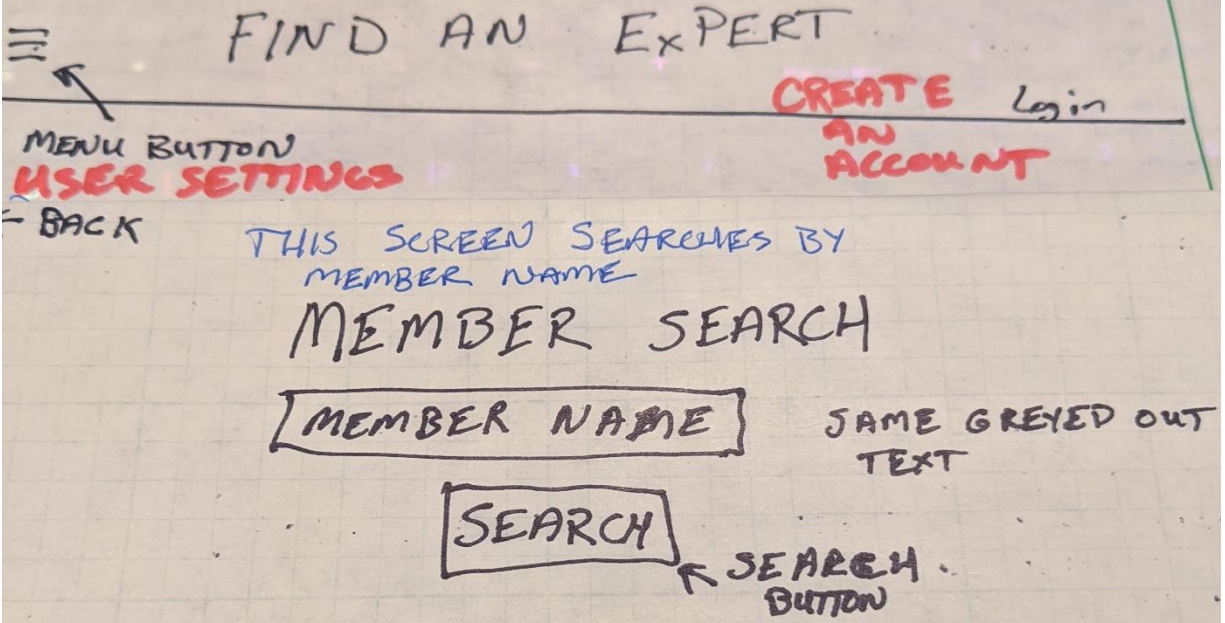 FIND AN EXPERT
CREATE Login
AN
ACCOUNT
MENU BUTTON
USER SETTINGS
← BACK
THIS SCREEN SEARCHES BY
MEMBER NAME
MEMBER SEARCH
MEMBER NAME
SAME GREYED OUT
TEXT
SEARCH
SEARCH
BUTTON